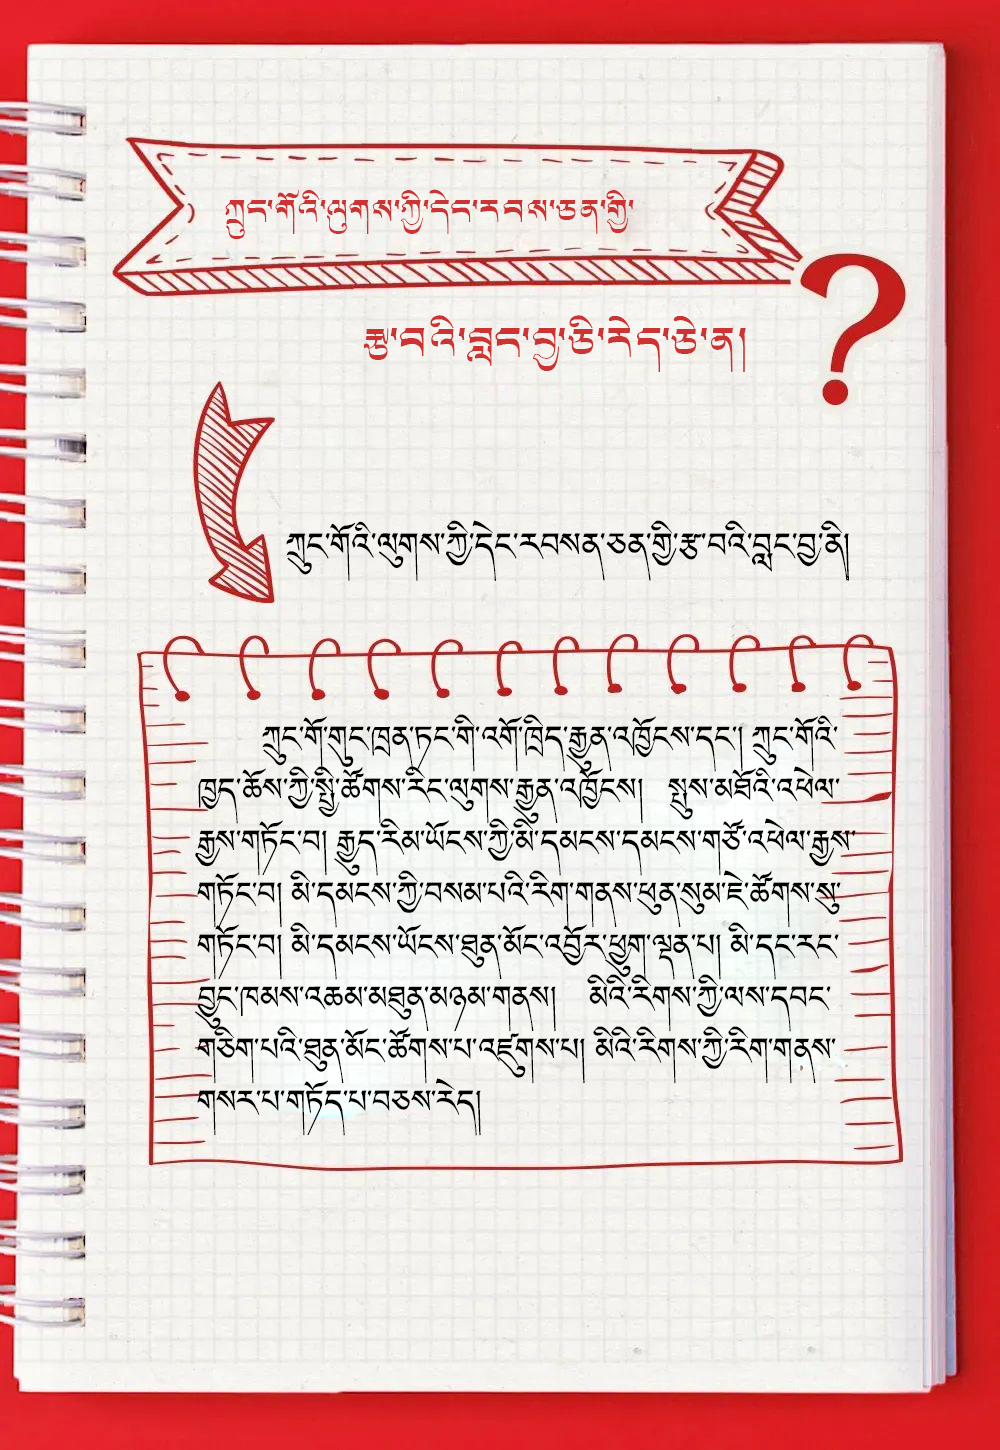 ཀྲུང་གོའི་ལུགས་ཀྱི་དེང་རབས་ཅན་གྱི་
རྩ་བའི་བླང་བྱ་ཅི་རེད་ཅེ་ན།
ཀྲུང་གོའི་ལུགས་ཀྱི་དེང་རབསན་ཅན་གྱི་རྩ་བའི་བླང་བྱ་ནི།
ཀྲུང་གོ་གུང་ཁྲན་ཏང་གི་འགོ་ཁྲིད་རྒྱུན་འཁྱོངས་དང་། ཀྲུང་གོའི་
ཁྱད་ཆོས་ཀྱི་སྤྱི་ཚོགས་རིང་ལུགས་རྒྱུན་འཁྱོངས། སྤུས་མཐོའི་འཕེལ་
རྒྱས་གཏོང་བ། རྒྱུད་རིམ་ཡོངས་ཀྱི་མི་དམངས་དམངས་གཙོ་འཕེལ་རྒྱས་
གཏོང་བ། མི་དམངས་ཀྱི་བསམ་པའི་རིག་གནས་ཕུན་སུམ་ཇེ་ཚོགས་སུ་
གཏོང་བ། མི་དམངས་ཡོངས་ཐུན་མོང་འབྱོར་ཕྱུག་ལྡན་པ། མི་དང་རང་
བྱུང་ཁམས་འཆམ་མཐུན་མཉམ་གནས། མིའི་རིགས་ཀྱི་ལས་དབང་
གཅིག་པའི་ཐུན་མོང་ཚོགས་པ་འཛུགས་པ། མིའི་རིགས་ཀྱི་རིག་གནས་
གསར་པ་གཏོད་པ་བཅས་རེད།